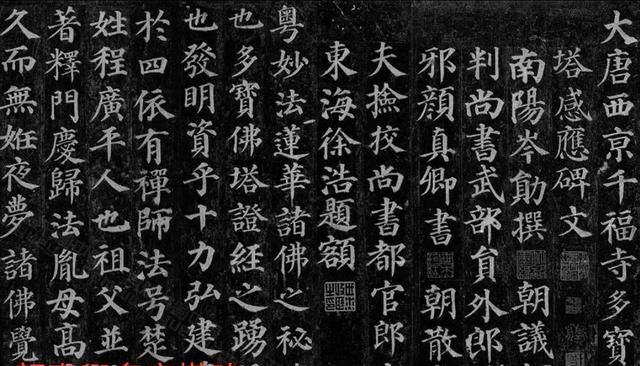 大唐西京千福寺多寶
塔感應碑文
南陽岑勛撰 朝議
判尚書武部員外郎
邪顏真卿書 朝散
夫撿挍尚書都官郎
東海徐浩題額
粵妙法蓮華諸佛之祕
也多寶佛塔證經之踴
也發明資乎十力弘建
於四依有禪師法号楚
姓程廣平人也祖父並
著釋門慶歸法胤母高
久而無姙夜夢諸佛覺